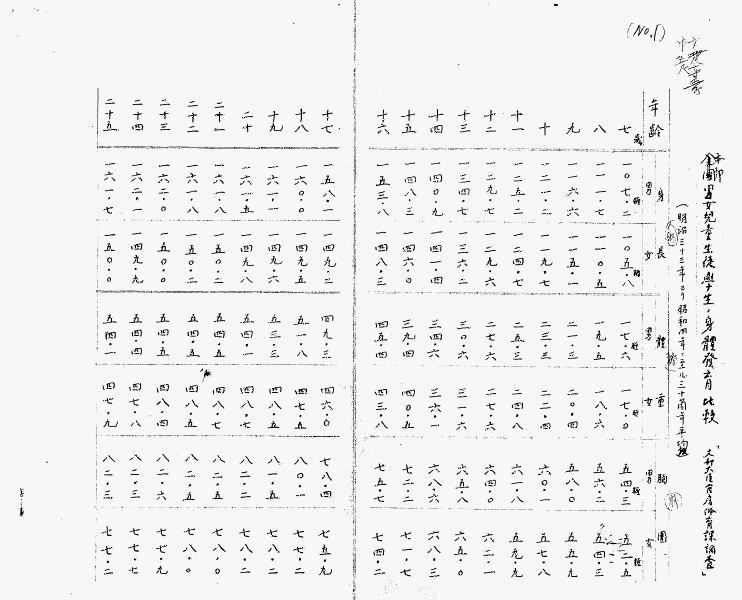 (No.1)
本邦
全國男女兒童生徒學生ノ身體發育比較 「文部大臣官房体育課調査」
(明治三十三年ヨリ昭和四年ニ至ル三十箇年平均)
年齢 身長 男 女 體重 男 女 胸圍 男 女
七歳 一〇七・二糎 一〇五・八糎 一七・六瓩 一七・〇瓩 五四・三糎 五二・五糎
八 一一一・七 一一〇・五 一九・五 一八・六 五六・二 五四・三
九 一一六・六 一一五・一 二一・三 二〇・四 五八・〇 五五・九
十 一二一・二 一一九・七 二三・三 二二・四 六〇・一 五七・八
十一 一二五・二 一二四・七 二五・三 二四・八 六一・八 五九・九
十二 一二九・七 一二九・六 二七・六 二七・六 六四・〇 六二・一
十三 一三四・七 一三六・二 三〇・六 三一・六 六五・八 六五・〇
十四 一四〇・九 一四一・四 三四・六 三六・一 六八・六 六八・三
十五 一四八・三 一四六・〇 三九・四 四〇・五 七二・二 七一・七
十六 一五三・八 一四八・三 四五・四 四三・八 七五・七 七四・二
十七 一五八・一 一四九・二 四九・三 四六・〇 七八・四 七五・九
十八 一六〇・〇 一四九・五 五一・八 四七・五 八〇・一 七七・二
十九 一六一・〇 一四九・六 五三・三 四八・五 八一・五 七八・二
二十 一六一・五 一四九・八 五三・四 四八・七 八二・二 七八・二
二十一 一六一・八 一五〇・二 五四・三 四八・七 八二・〇 七八・〇
二十二 一六一・八 一五〇・二 五四・五 四八・二 八二・三 七八・〇
二十三 一六二・〇 一五〇・〇 五四・五 四八・四 八二・六 七七・九
二十四 一六二・一 一四九・九 五四・四 四七・八 八二・五 七七・七
二十五 一六一・七 一五〇・〇 五四・一 四七・九 八二・三 七七・二